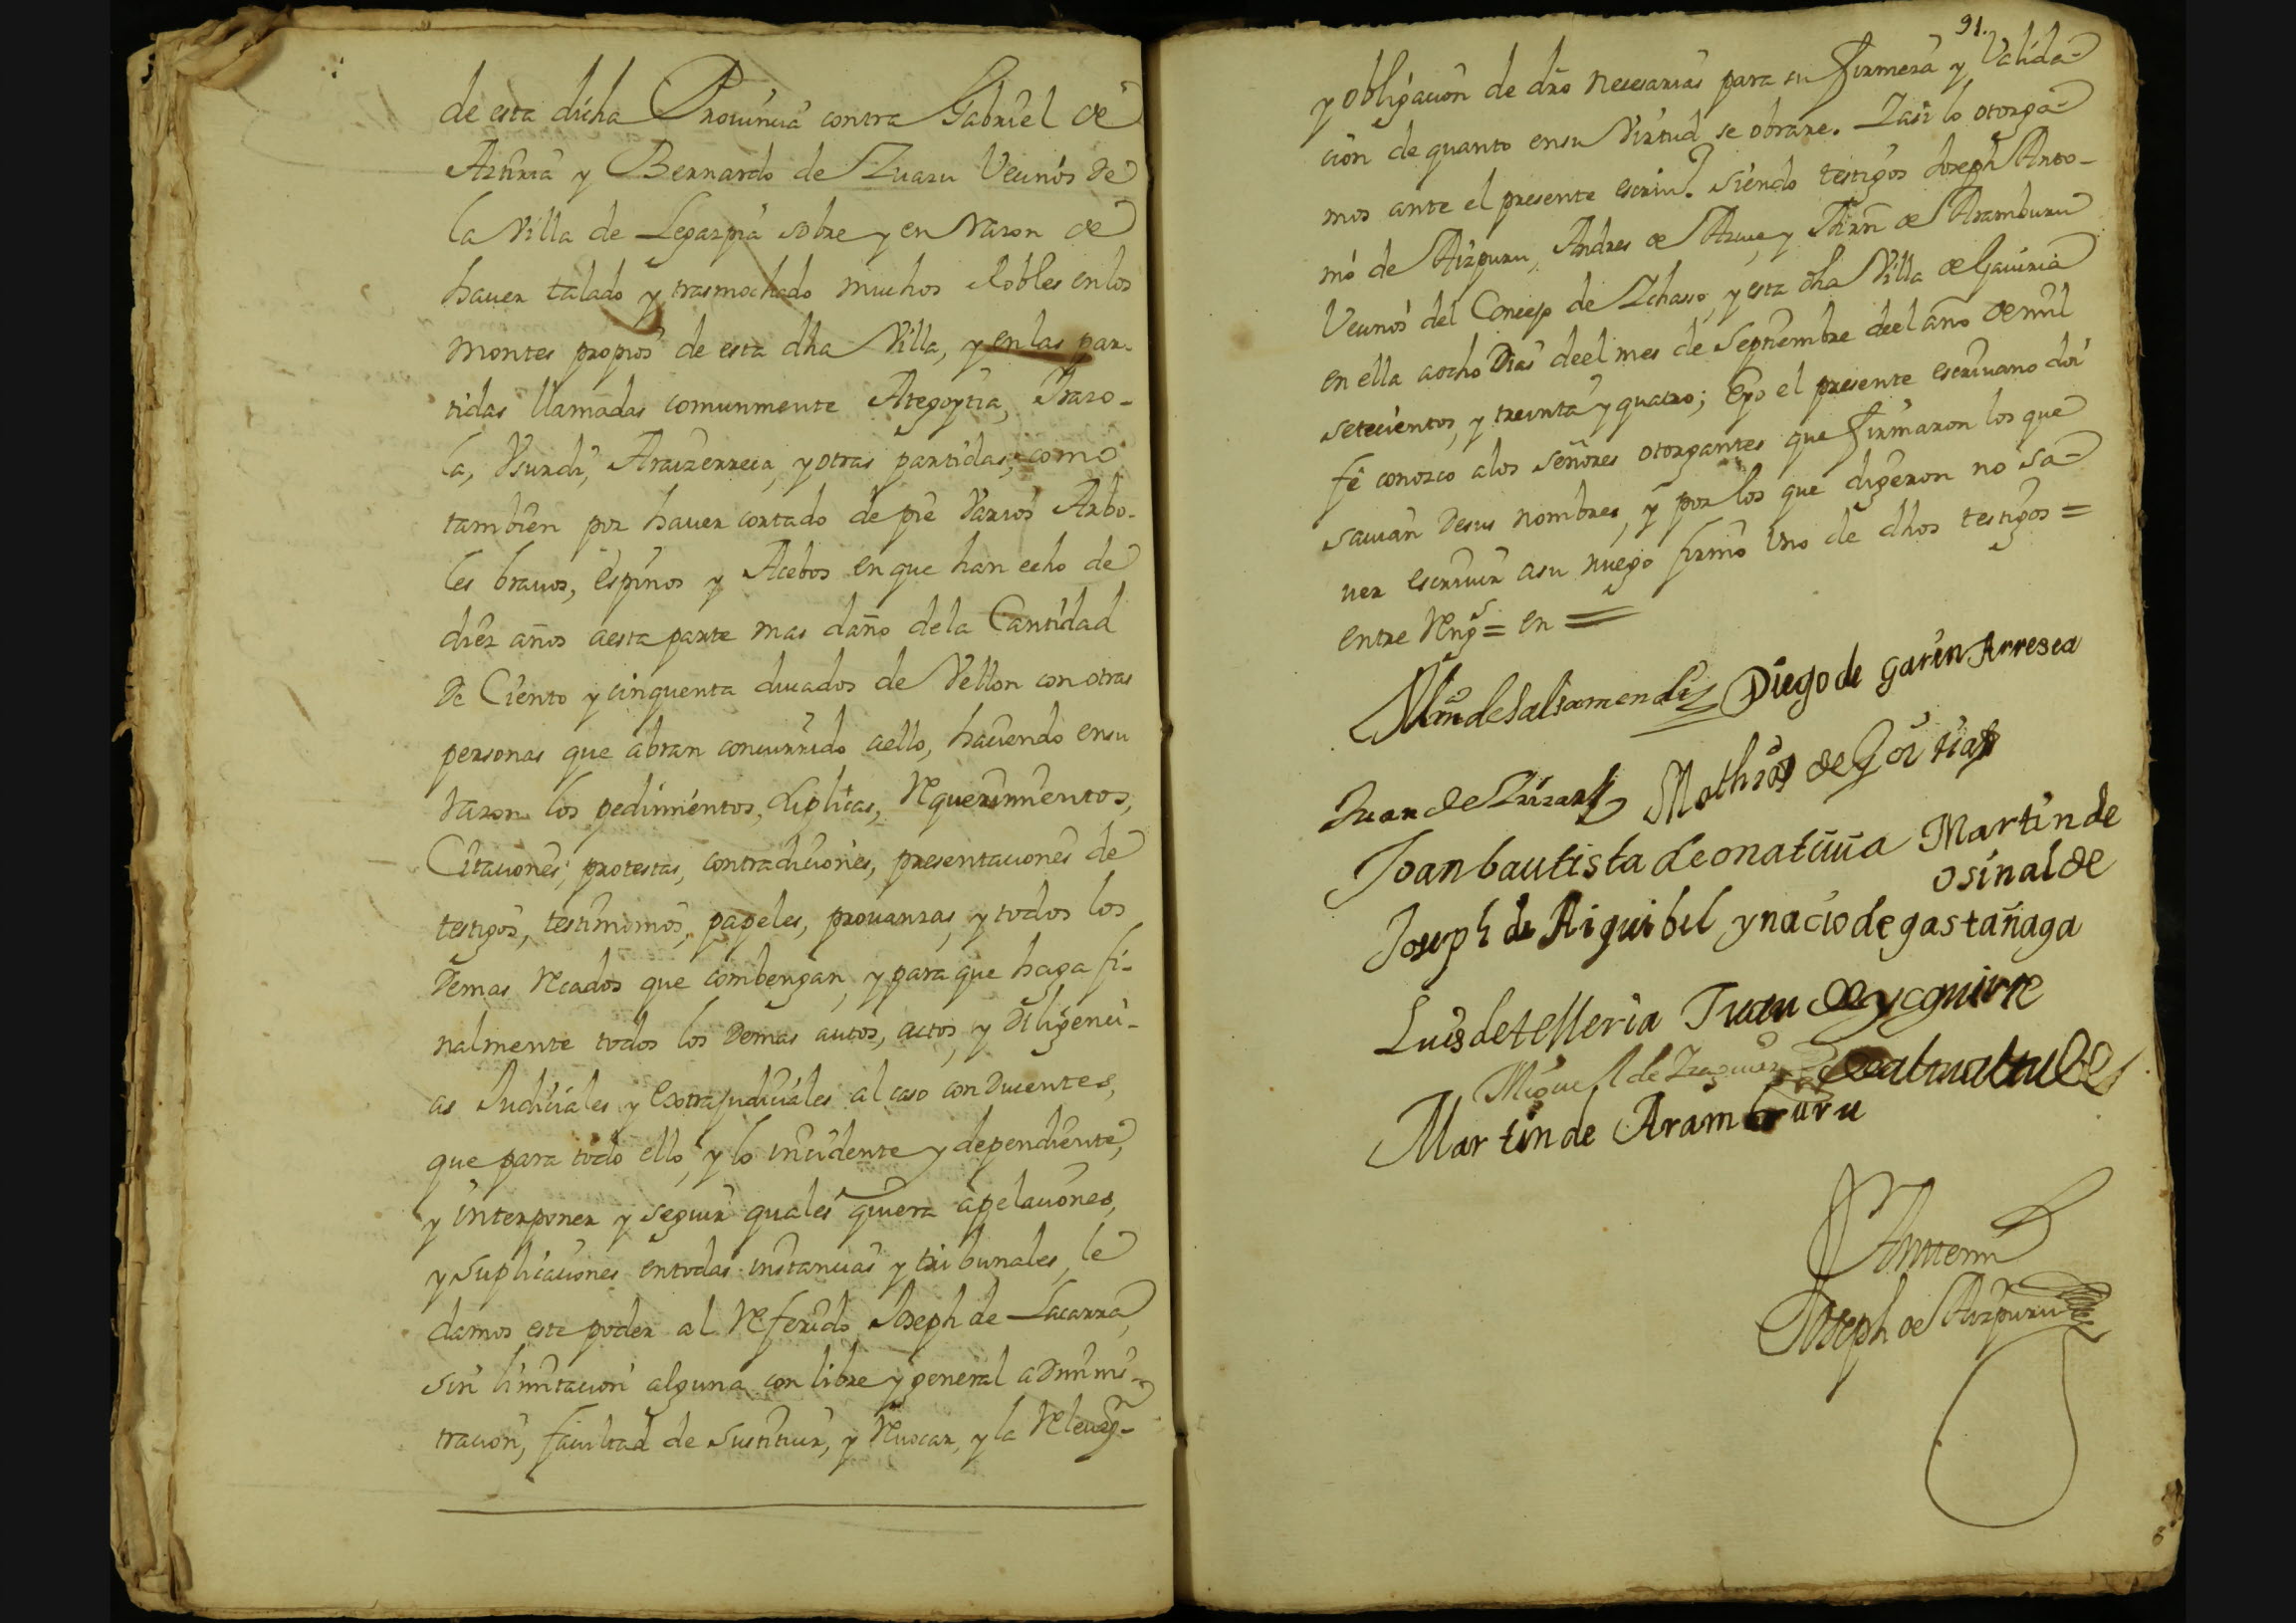 de esta dicha Prouincia contra Gabriel de
Aztiria y Bernardo de Zuazu Vecinos de
la Villa de Legazpia sobre y en razon de
hauer talado y trasmochado muchos Robles enlos
montes propios de esta dha Villa, y en las par-
tidas llamadas comunmente Ategoytia,
la, Vsurdi, Araizerreca, y otras partidas, como
tambien por hauer cortado de pie Varios Arbo-
les brauos, espinos y Acebos en que han echo de
diez años aesta parte mas daño dela Cantidad
De Ciento y cinquenta ducados de Vellon con otras
personas que abran concurrido aello, haciendo ensu
razon los pedimientos, suplicas, Requerimientos,
Citaciones, protestas, contradiciones, presentaciones de
testigos, testimonios, papeles, prouanzas, y todos los
Demas Recados que combengan, y para que haga fi-
nalmente todos los Demas autos, actos, y Diligenci-
as Judiciales y Extrajudiciales al caso conDucentes,
que para todo ello, y lo incidente y dependiente,
y interponer y seguir quales quiera apelaciones,
y suplicaciones entodas instancias y tribunales, le
damos este poder al Referido Joseph de Lacarra,
sin limitacion alguna con libre y general aDminis-
tracion, facultad de Sustituir, y Reuocar, y la Releuaz.n
91.
y obligacion de dro necesarias para su firmeza y Valida-
cion de quanto ensu Virtud se obrare. Yasi lo otorga-
mos ante el presente escriu.o siendo testigos Joseph Anto-
nio de Aizpuru, Andres de Arcue, y Mrn de Aramburu
Vecinos del Concejo de Ychasso, y esta dha Villa de Gauiria
en ella aocho Dias deel mes de Septiembre deel año de mil
setecientos, y treinta y quatro; Eyo el presente escriuano doi
fe conozco alos señores otorgantes que firmaron los que
sauian Desus nombres, y por los que digeron no sa-
uer escriuir asu ruego firmo Vno de dhos testigos =
entre Rengs = en =
Mrn de Saltamendi Diego de Garin Arresea
Juan de Mathias de Goitia
Joan bautista de onatiuia Martin de
osinalde
Joseph de Aiguibel ynacio de gastañaga
Luis de telleria Juan de yzaguirre
Miguel de
Martin de Aramburu
Antemi
Joseph de Aizpuru